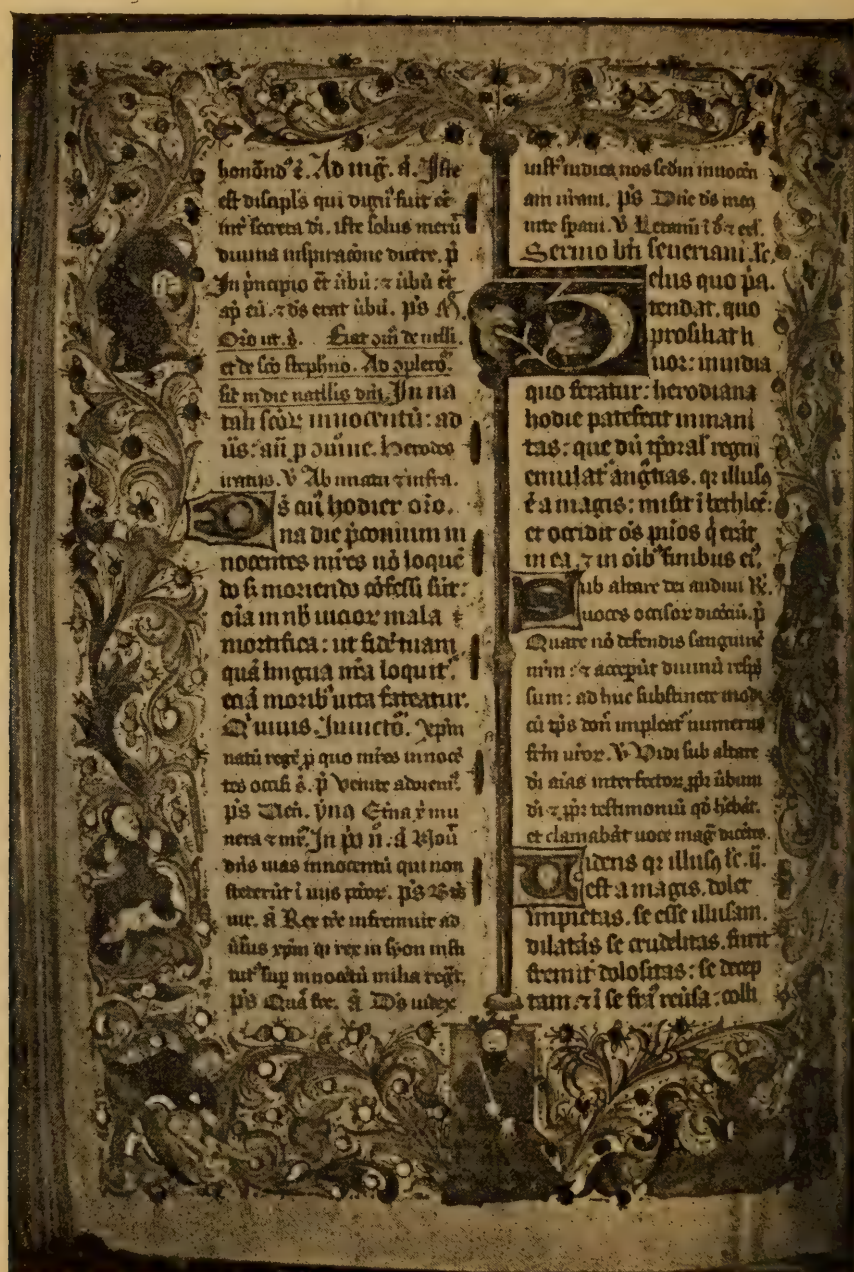 honōnd⁹ ē. Ad mg̃. ā. Iste
est discipl's qui dign⁹ fuit eē
int̕ secreta di. iste solus meru᷑
diuina inspiracōne dicere. p̄
In p̕ncipio ēt ůbū: ⁊ ůbū ēt
ap̄ eū. ⁊ d̄s erat ůbū. p̄s
Oŕo ut. s̕. Fiat ōm̄ de
et de sc̄o stephāo. Ad ɔpletō.
fit in die natilis dn̄i. In na
tali sc̄oꝝ innocentū: ad
ůs: añ p ɔuinc. Herodes
iratus. v̕ Ab imatu ⁊ infra.
Ds cui⁹ hodier oŕo.
na die p̕conium in
nocentes mr̕es nō loquē
do s̕ moriendo ɔ̄fessi sūt:
oīa in nb̕ uicioꝝ mala
mortifica: ut fidē tuam
quā lingua nr̄a loquit̕.
eciā morib⁹ uita fateatur.
Q' uiuis. Inuictō. xp̄m
natū regē p̄ quo mr̕es innocē
tes occisi s̕. p̄ Venite adorem⁹.
p̄s Ven̄. ẏnꝰ
nera ⁊ mr̕. In p̄o n̄. ā Nou᷑
dn̄s uias innocentū qui non
steterūt ī uijs pc̄oꝝ. p̄s Bt̄s
uir. ā Rex tr̄e infremuit ad
ůsus xp̄m qi rex in syon insti
tut⁹ sup̄ innocētū milia regt̕.
p̄s Quā fre. ā D̄s iudex
iust⁹ iudica nos sed̄m innocēn
am nr̄am. p̄s Dn̄e d̄s me⁹
in te sp̄aui. v̕ Letamī ī d̄ ⁊ exl̄.
Sermo bt̄i seueriani. lc̄.
Zelus quo p̄a.
tendat. quo
prosiliat li
uor: inuidia
quo feratur: herodiana
hodie patefecit inmani
tas: que dū tp̄oral' regni
emulat̕ ang⁹tias. qi illus⁹
ē a magis: misit ī bethleē:
et occidit ōs pūos q̄ erāt
in ea. ⁊ in oīb⁹ finibus ei⁹.
Sub altare dei audiui R̕.
uoces occisoꝝ dicētiū. p̄
Quare nō defendis sanguinē
nr̄m: ⁊ acceperūt diuinū respō
sum: ad huc sustinete modi⁹
cū tp̄s don̄ impleat̕ numerus
fr̄m ur̄oꝝ. v̕ Vidi sub altare
di aīas interfectoꝝ ꝓpt̕ ůbum
di ⁊ ꝓpt̕ testimoniū qō hēbāt.
et clamabāt uoce mag̃ dicētes.
Videns qi illus⁹ lc̄. ij.
est a magis. dolet
impietas. se esse illusam.
dilatās se crudelitas. furit
fremit dolositas: se decep
tam. ⁊ ī se frā reůsa: colli